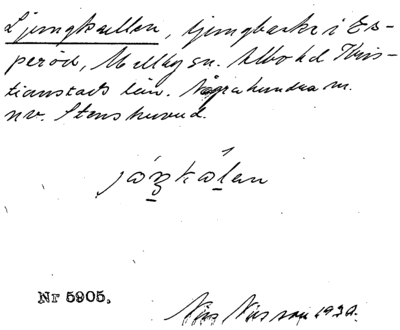 Ljungkullen, ljungbacke i Es-
peröd, Mellby sn. Albo hd Kris-
tianstads län. Några hundra m.
nv. Stenshuvud.
Nr 5905.
Nils Nilsson 1930.